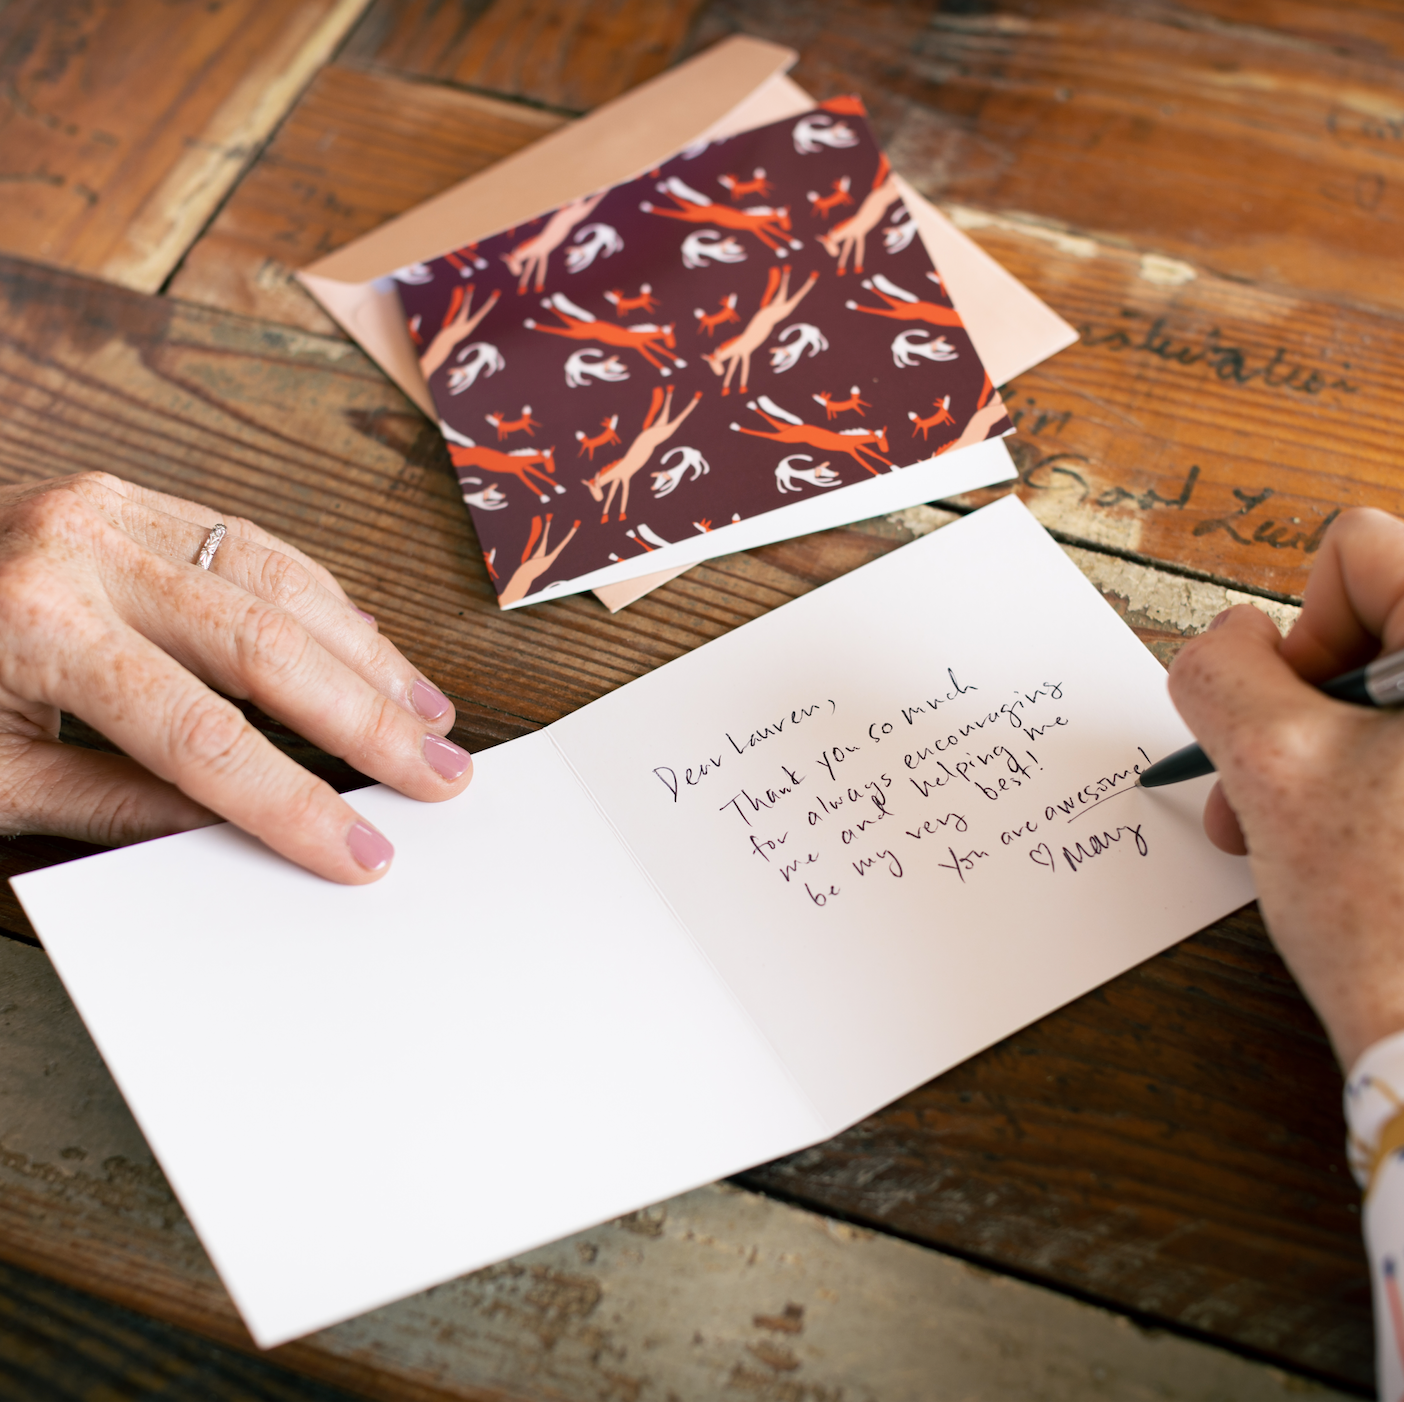 Good Luck
Dear Lauren,
Thank you so much
for always encouraging
me and helping me
be my very best!
You are awesome!
♡ Mary